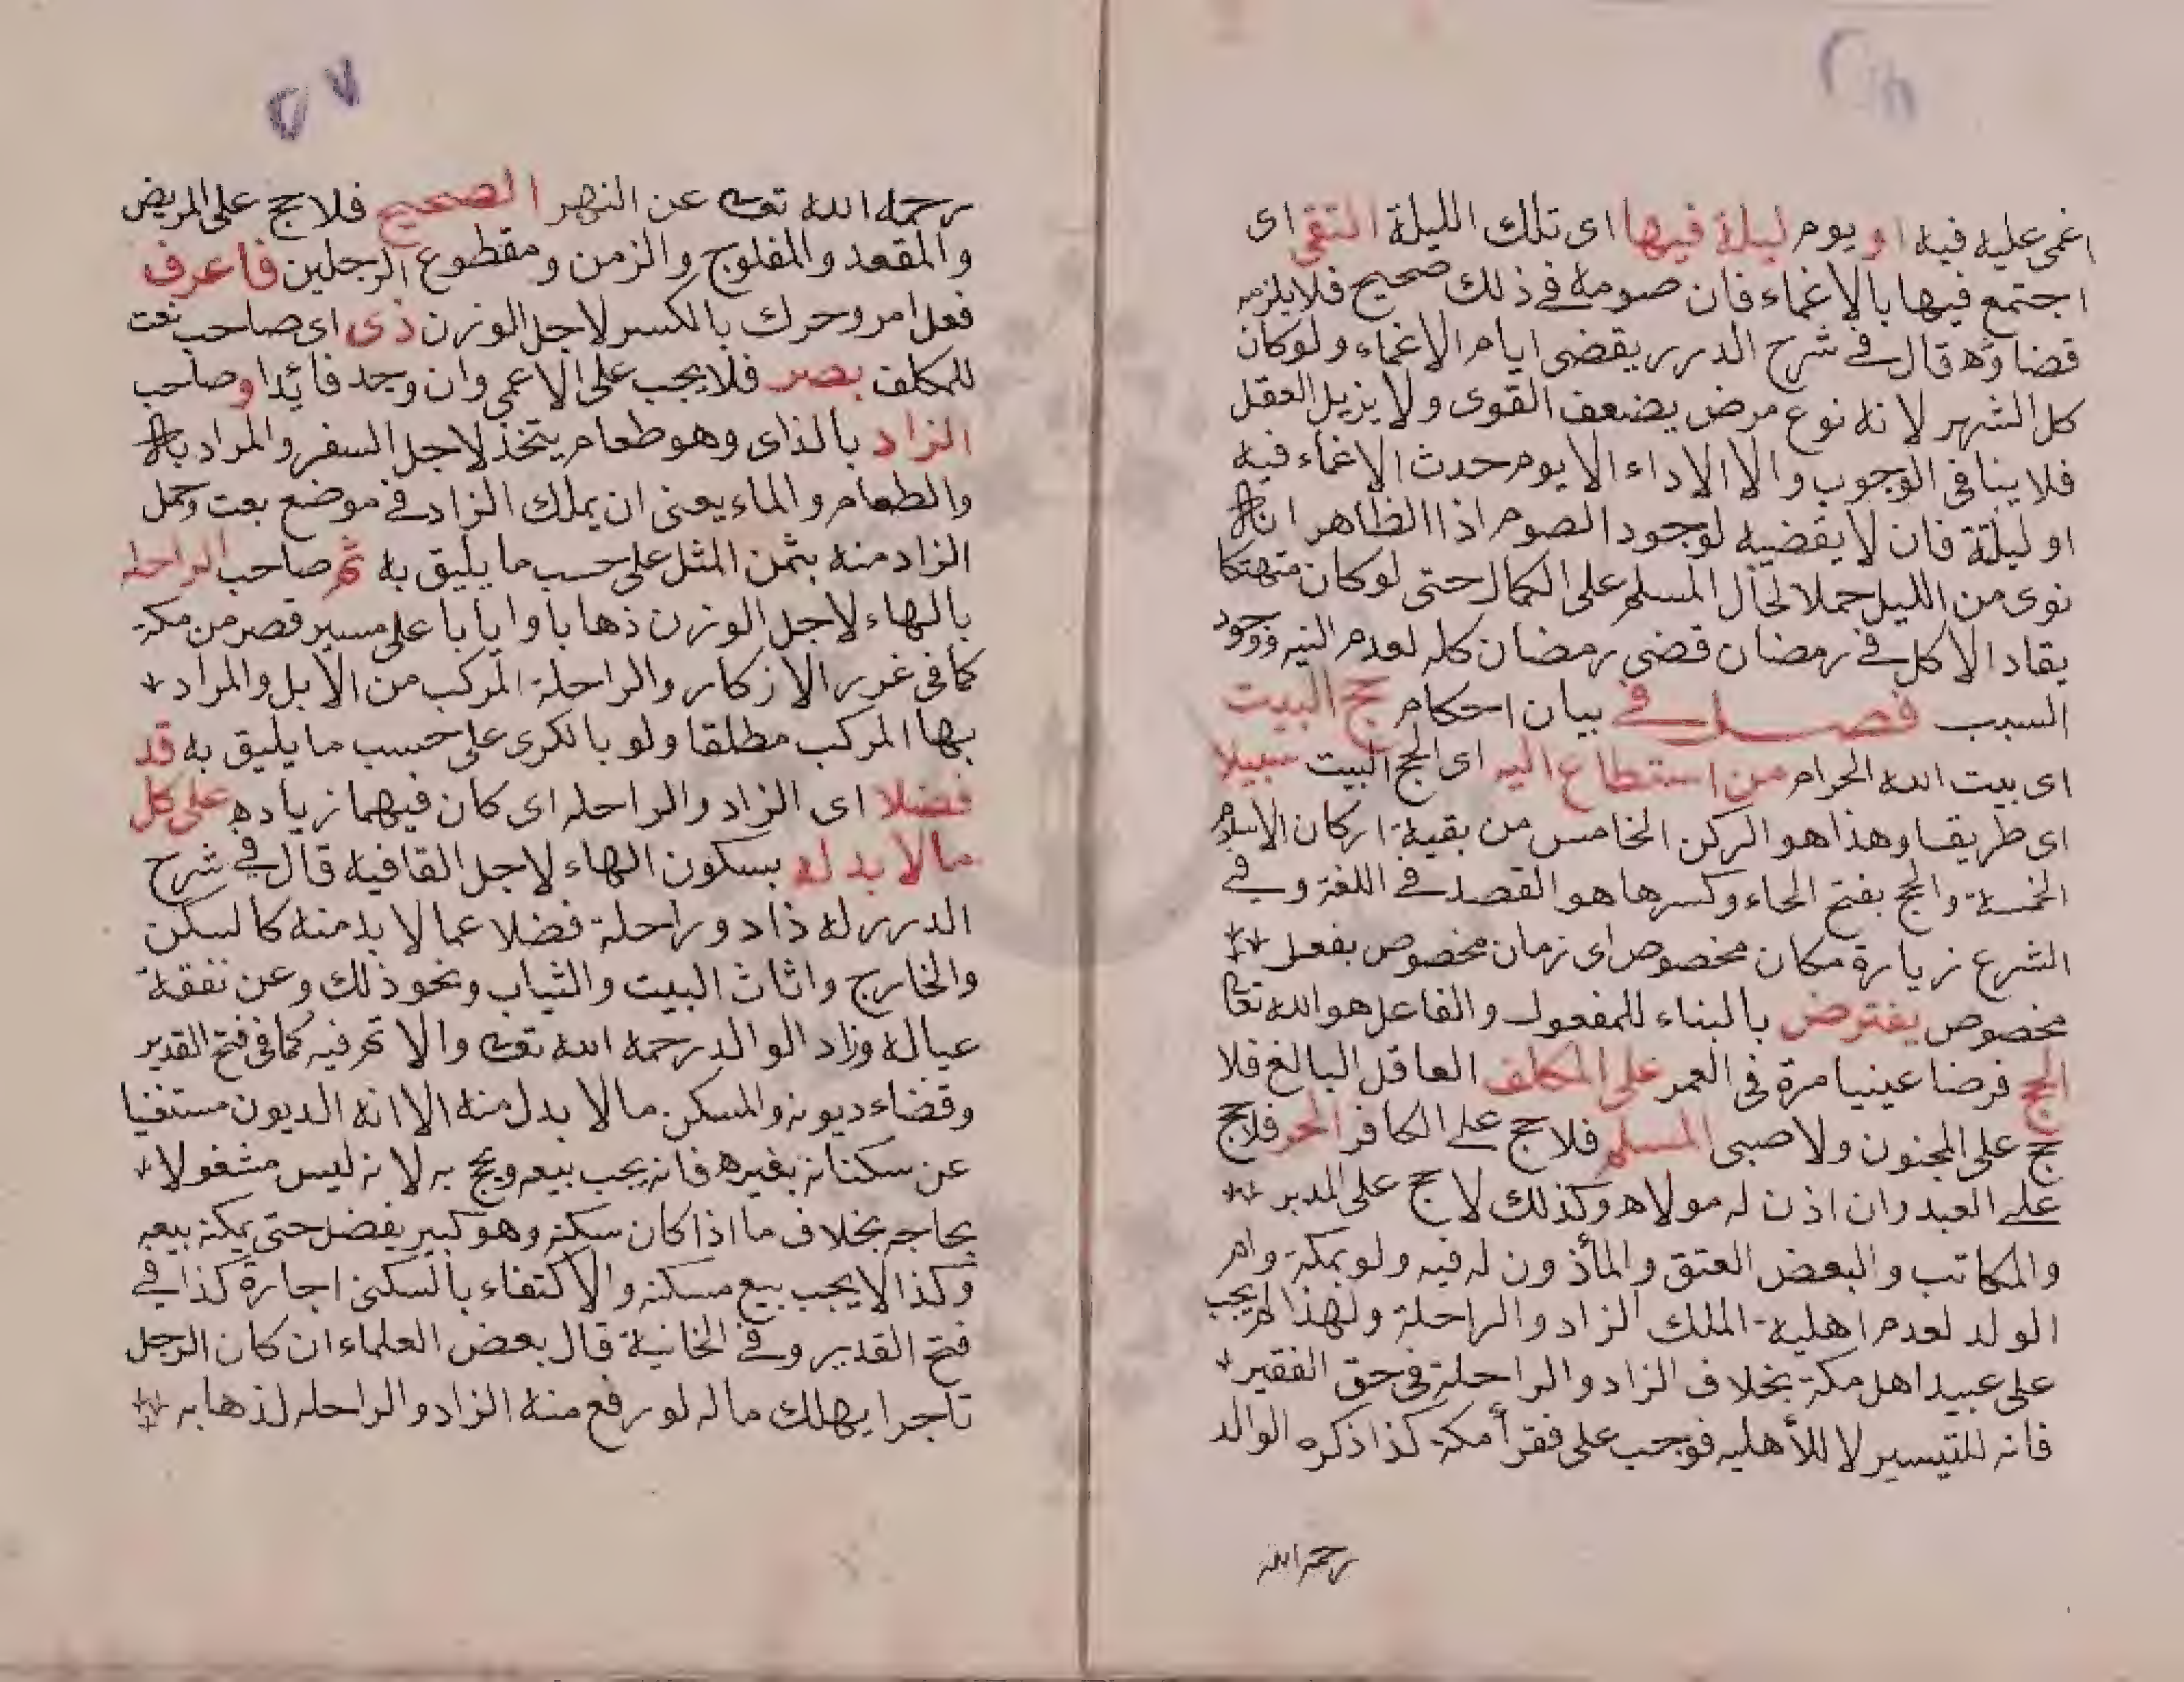 اغمى عليه فيه او يوم ليلة فيها اى تلك الليلة التقى اى
اجتمع فيها بالاغماء فان صومه في ذلك صحيح فلا يلزمه
قضاؤه قال في شرح الدرر يقضى ايام الاغماء ولو كان
كل الشهر لانه نوع مرض يضعف القوى ولا يزيل العقل
فلا ينافى الوجوب والا الاداء الا يوم حدث الاغماء فيه
او ليلة فان لا يقضيه لوجود الصوم اذا الظاهر انه
نوى من الليل حملا لحال المسلم على الكمال حتى لو كان متهتكا
يقاد الاكل في رمضان قضى رمضان كله لعدم النيه ووجود
السبب فصل في بيان احكام حج البيت
اى بيت الله الحرام من استطاع اليه اى الحج البيت سبيلا
اى طريقا وهذا هو الركن الخامس من بقية اركان الاسلام
الخمسة والحج بفتح الحاء وكسرها هو القصد في اللغة وفي
الشرع زيارة مكان مخصوص اى زمان مخصوص بفعل
مخصوص يفترض بالبناء للمفعول والفاعل هو الله تعا
الحج فرضا عينيا مرة فى العمر على المكلف العاقل البالغ فلا
حج على المجنون ولا صبى المسلم فلا حج على الكافر الحر فلا حج
على العبد وان اذن له مولاه وكذلك لا حج على المدبر
والمكاتب والبعض العتق والمأذون له فيه ولو بمكة وام
الولد لعدم اهلية الملك الزاد والراحلة ولهذا لم يجب
على عبيد اهل مكة بخلاف الزاد والراحلة فى حق الفقير
فانه للتيسير لا للأهليه فوجب على فقرأ مكة كذا ذكره الوالد
رحمه الله
٥٧
رحمه الله تعالى عن النهر الصحيح فلا حج على المريض
والمقعد والمفلوج والزمن ومقطوع الرجلين فاعرف
فعل امر وحرك بالكسر لاجل الوزن ذى اى صاحب نعت
للمكلف بصر فلا يجب على الاعمى وان وجد قائدا وصاحب
الزاد بالذاى وهو طعام يتخذ لاجل السفر والمراد به
والطعام والماء يعنى ان يملك الزاد في موضع بعت وحمل
الزاد منه بثمن المثل على حسب ما يليق به ثم صاحب الراحله
بالهاء لاجل الوزن ذهابا وايابا على مسير قصر من مكة
كما فى غرر الازكار والراحلة المركب من الابل والمراد
بها المركب مطلقا ولو بالكرى على حسب ما يليق به قد
فضلا اى الزاد والراحله اى كان فيهما زياده على كل
مالا بد له بسكون الهاء لاجل القافية قال في شرح
الدرر له ذاد وراحلة فضلا عما لا بد منه كالسكن
والخارج واثاث البيت والثياب ونحو ذلك وعن نفقة
عياله وزاد الوالد رحمه الله تعالى والا تحر فيه كما فى فتح القدير
وقضاء ديونه والمسكن مالا بدل منه الا انه الديون مستغنيا
عن سكناه بغيره فانه يجب بيعه ويحج به لانه ليس مشغولا
بحاجه بخلاف ما اذا كان سكنه وهو كبير يفضل حتى يمكنه بيعه
وكذا لا يجب بيع مسكنه والاكتفاء بالسكنى اجارة كذا في
فتح القدير وفي الخانية قال بعض العلماء ان كان الرجل
تاجرا يهلك ماله لو رفع منه الزاد والراحله لذهابه